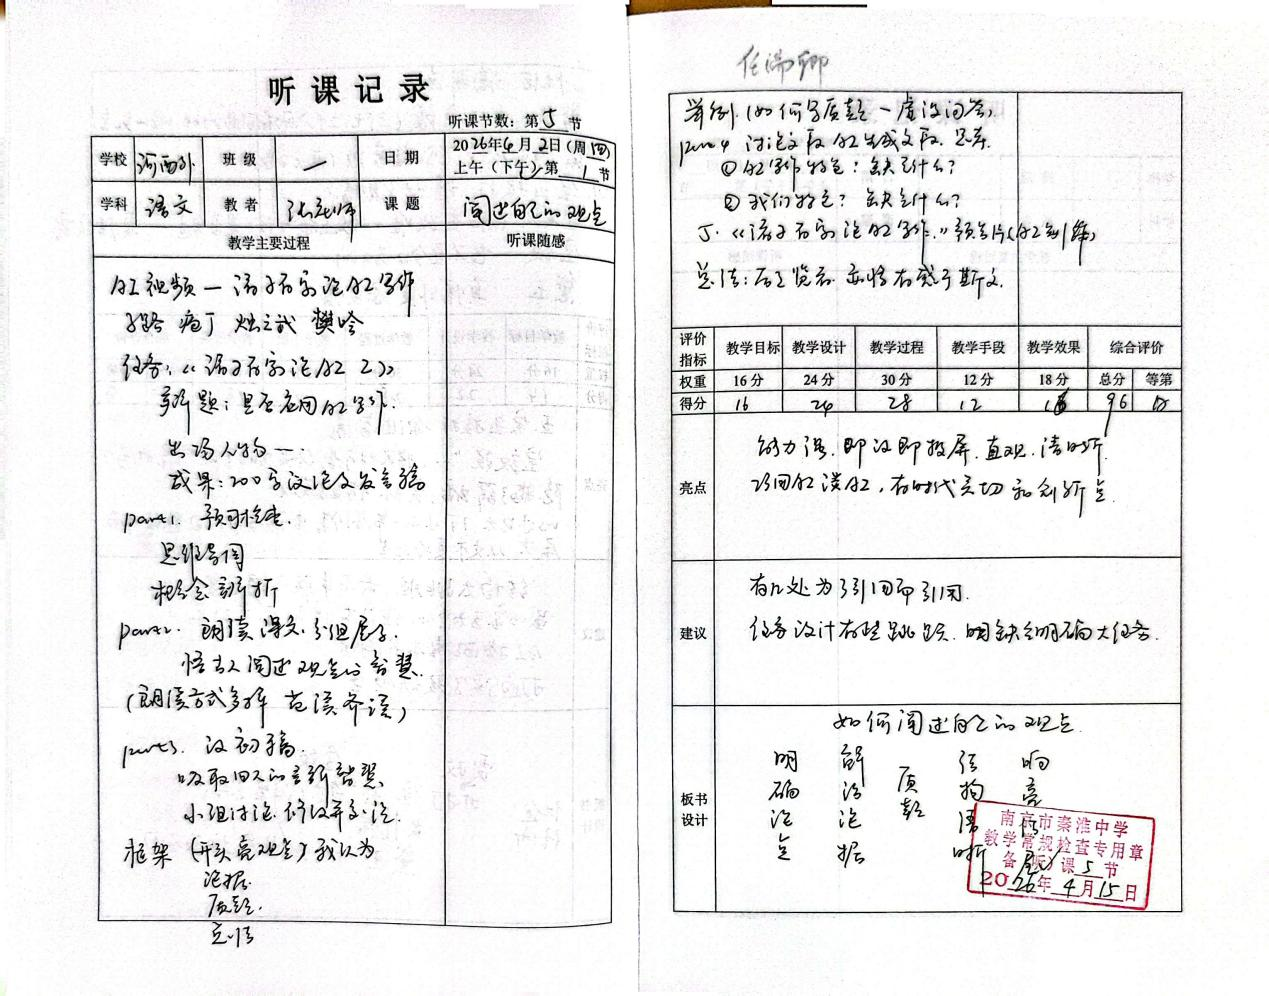 听课记录
听课节数：第5节
学校 河西外 班级 一 日期 2026年4月2日（周四）
上午（下午）第1节
学科 语文 教者 张老师 课题 阐述自己的观点
教学主要过程 听课随感
AI视频—诸子百家论AI写作
子路 庖丁 烛之武 樊哙
任务：《诸子百家论AI 2》
新题：是否应用AI写作．
出场人物—
成果：200字议论文发言稿
part1. 预习检查．
思维导图
概念辨析
part2. 朗读课文，分组展示．
悟古人阐述观点的智慧．
（朗读方式多样 范读齐读）
part3. 议初稿．
吸取古人的言辞智慧．
小组讨论 修改并交流．
框架（开头亮观点）我认为
论据．
质疑．
总结
任湍卿
举例．（如何写质疑—虚设问答）
part4 讨论文段 AI生成文段．思考．
①AI写作特色：缺失什么？
②我们特色？缺失什么？
5.《诸子百家论AI写作》预告片（AI制作）
总结：后之览者 亦将有感于斯文．
评价指标 教学目标 教学设计 教学过程 教学手段 教学效果 综合评价
权重 16分 24分 30分 12分 18分 总分 等第
得分 16 24 28 12 16 96 A
亮点
能力强．即议即投屏．直观．清晰．
巧用AI谈AI，有时代关切和创新点
建议
有几处为了引用而引用．
任务设计有些跳跃．明缺明确大任务．
板书设计
如何阐述自己的观点．
明确论点
解论据
质疑
南京市秦淮中学
教学常规检查专用章
备（听）课5节
2026年4月15日